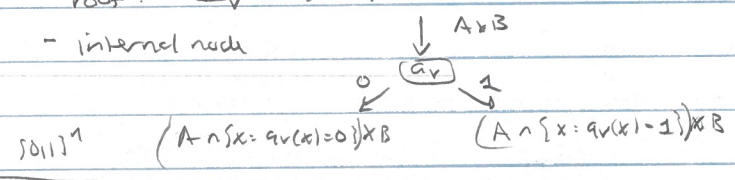 - internal node
A x B
a_v
0 1
{0,1}^n (A ∩ {x: a_v(x)=0}) x B (A ∩ {x: a_v(x)=1}) x B